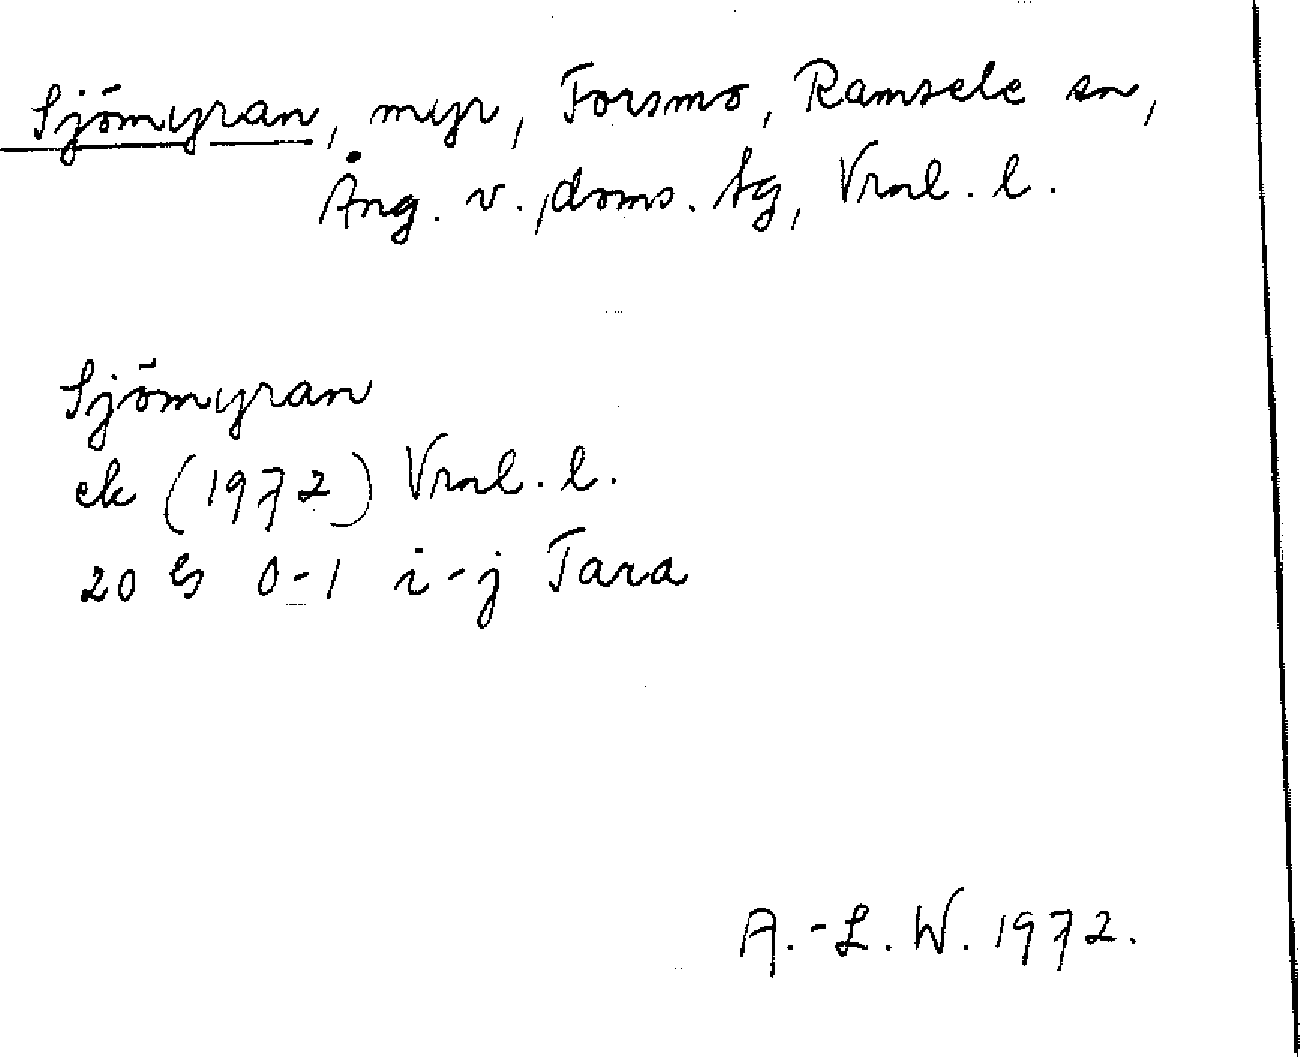 Sjömyran, myr, Forsmo, Ramsele sn,
Ång. v. doms. tg, Vnl. l.
Sjömyran
ek (1972) Vnl. l.
20 G 0-1 i-j Tara
A.-L. W. 1972.